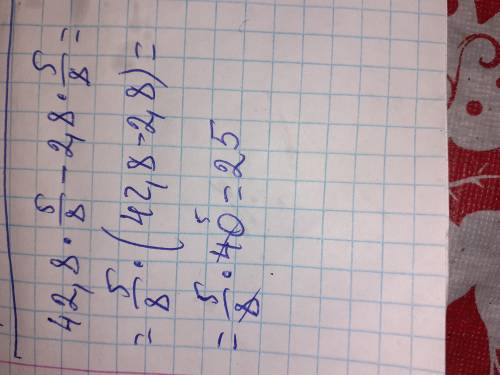 42,8 · 5/8 − 2,8 · 5/8 =
= 5/8 · (42,8 − 2,8) =
= 5/8 · 40 5 = 25